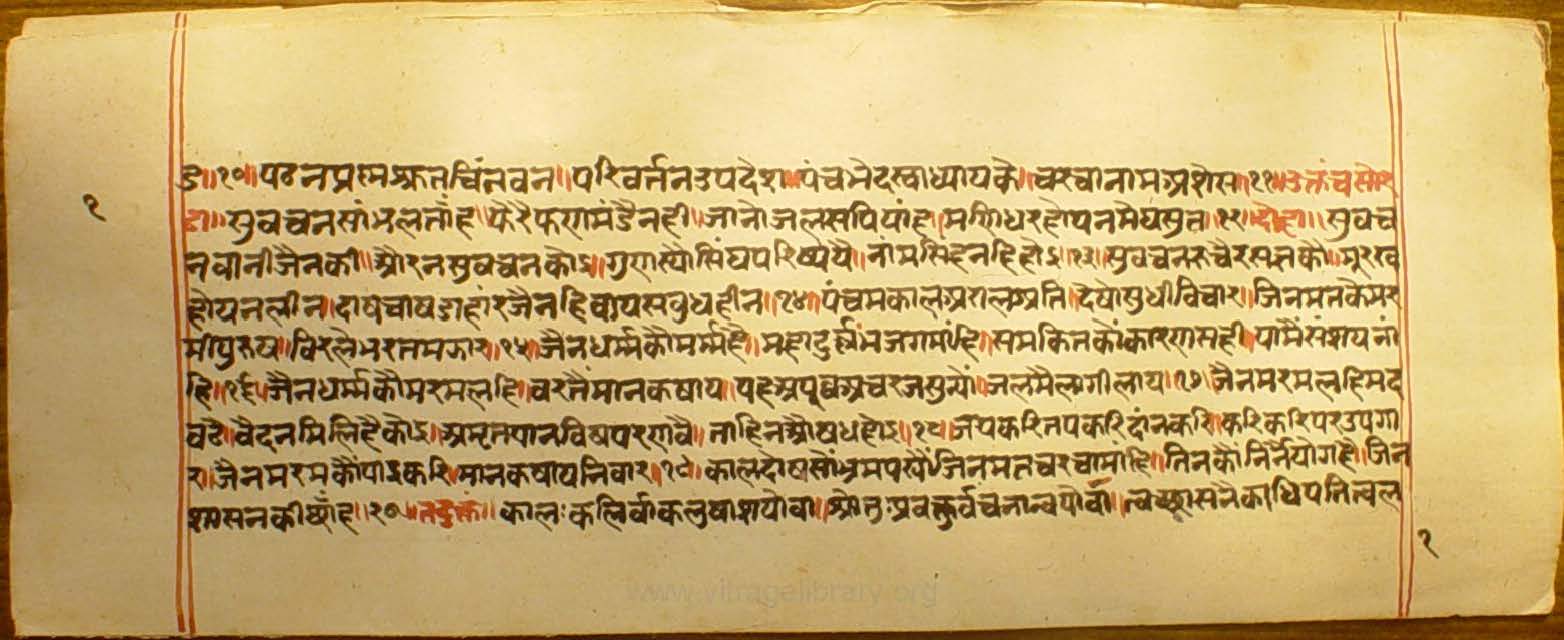 ड॥१०॥पठनप्रस्मक्ततचिंतवन॥परिवर्त्तनउपदेश॥पंचभेदस्वाध्यायके॥चरचानामअशेस॥११॥उक्तंचसोर
ठा॥सुवचनसांभलतांह॥फेरैफणमंडैनही॥जानोजलसपियांह॥मणिधरहोयनमेघसुत॥१२॥दोहा॥सुवच
नवानीजैनकी॥औरनसुवचनकोऽ॥गुणस्यौसिंघपरिष्यियै॥नांमसिंहनहिहोऽ॥१३॥सुवचनरुचैरसनकौ॥मूरख
होयनलीन॥दाषचाषडाहांरजैनहिवायसबुधहीन॥१४॥पंचमकालअरालअति॥देषोसुधीविचार॥जिनमतकेमर
मीपुरुष॥विरलैभरतमझार॥१५॥जैनधर्म्मकौमर्म्महै॥महादुर्ल्लभजगमांहि॥समकितकौंकारणसही॥यामैंसंशयनां
हि॥१६॥जैनधर्म्मकौमरमलहि॥वरतैंमानकषाय॥यहअपूवअचरजसुन्यौं॥जलमैलागीलाय॥१७॥जैनमरमलहिमद
वढै॥वैदनमिलिहैकोऽ॥अमृतपानविषपरणवै॥नाहिनऔषधहोऽ॥१८॥जपकरितपकरिदांनकरि॥करिकरिपरउपगा
र॥जैनमरमकौंपाऽकरि॥मानकषायनिवार॥१९॥कालदोषसौंभ्रमपरयौ॥जिनमतचरचामांहि॥तिनकौंनिर्नैयोगहै॥जिन
शासनकीछांह॥२०॥तदुक्तं॥कालःकलिर्वाकलुषाशयोवा॥श्रोतुःप्रवक्तुर्वचनान्वयोर्वा॥त्वच्छासनैकाधिपतित्वल
१
१
www.vitragelibrary.org